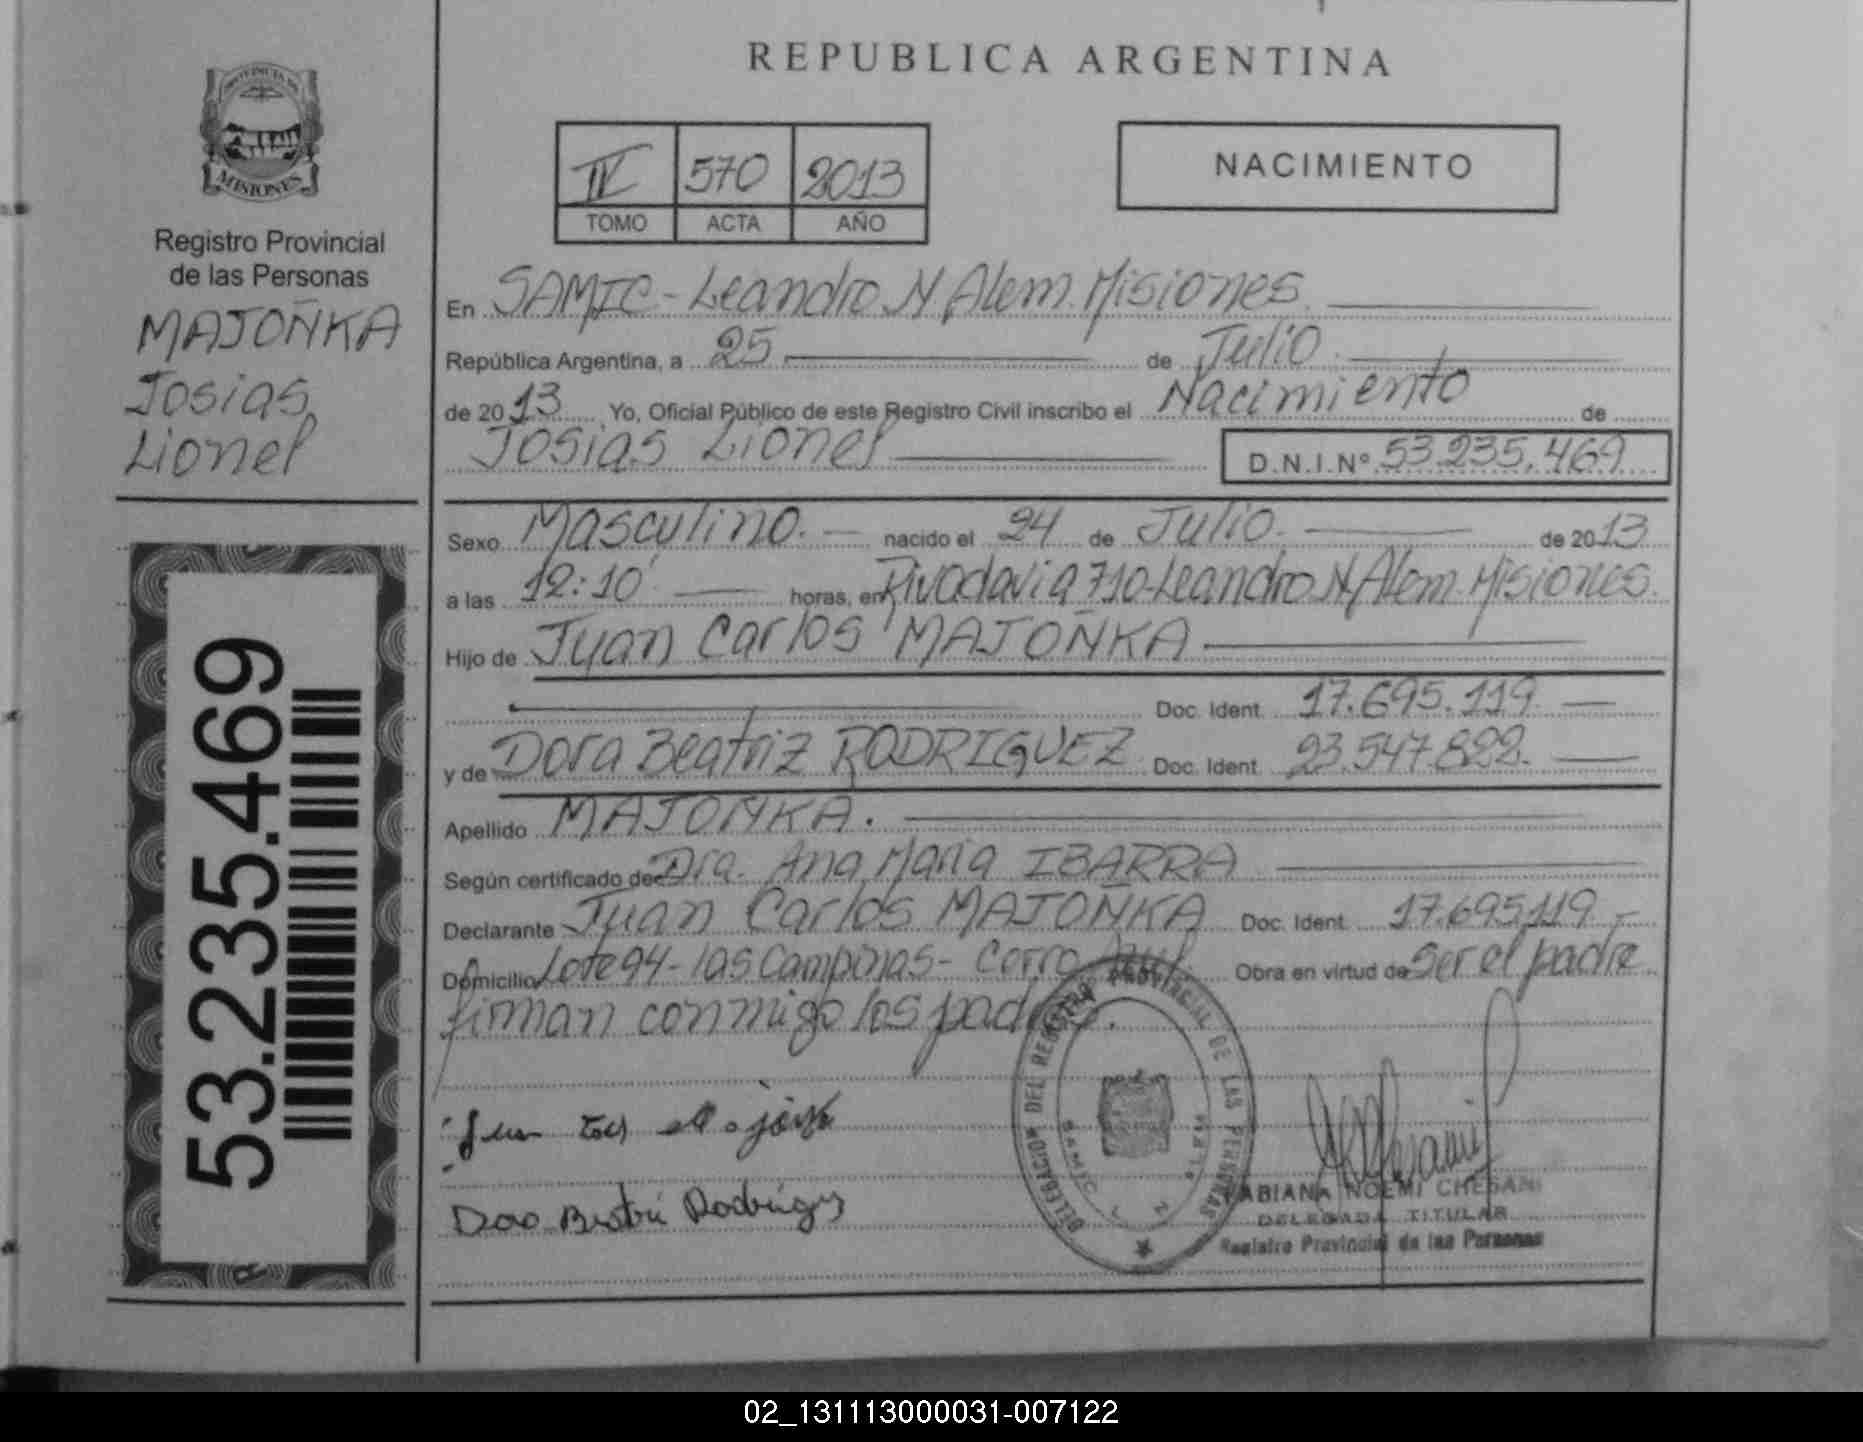 REPUBLICA ARGENTINA
PROVINCIA DE
MISIONES
Registro Provincial
de las Personas
MAJOÑKA
Josias
Lionel
53.235.469
IV 570 2013
TOMO ACTA AÑO
NACIMIENTO
En SAMIC - Leandro N Alem. Misiones.
República Argentina, a 25 de Julio.
de 2013 Yo, Oficial Público de este Registro Civil inscribo el Nacimiento de
Josias Lionel D.N.I.Nº 53.235.469
Sexo Masculino. nacido el 24 de Julio. de 2013
a las 12:10' horas, en Rivadavia 710-Leandro N Alem. Misiones.
Hijo de Juan Carlos MAJOÑKA
Doc. Ident. 17.695.119.
y de Dora Beatriz RODRIGUEZ Doc. Ident. 23.547.822.
Apellido MAJOÑKA.
Según certificado de Dra. Ana Maria IBARRA
Declarante Juan Carlos MAJOÑKA Doc. Ident. 17.695.119.-
Domicilio Lote 94 - las Campinas - Cerro Azul Obra en virtud de Ser el padre
firman conmigo los padres.
DELEGACION DEL REGISTRO PROVINCIAL DE LAS PERSONAS
SAMIC L N ALEM
Dora Beatriz Rodriguez
FABIANA NOEMI CHESANI
DELEGADA TITULAR
Registro Provincial de las Personas
02_131113000031-007122